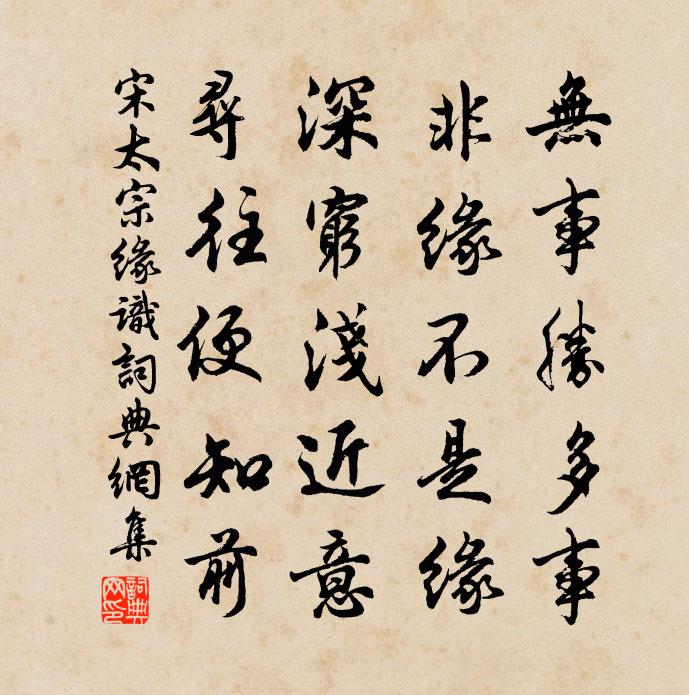 無事勝多事
非緣不是緣
深窮淺近意
尋往便知前
宋太宗緣識詞典網集
詞典網印